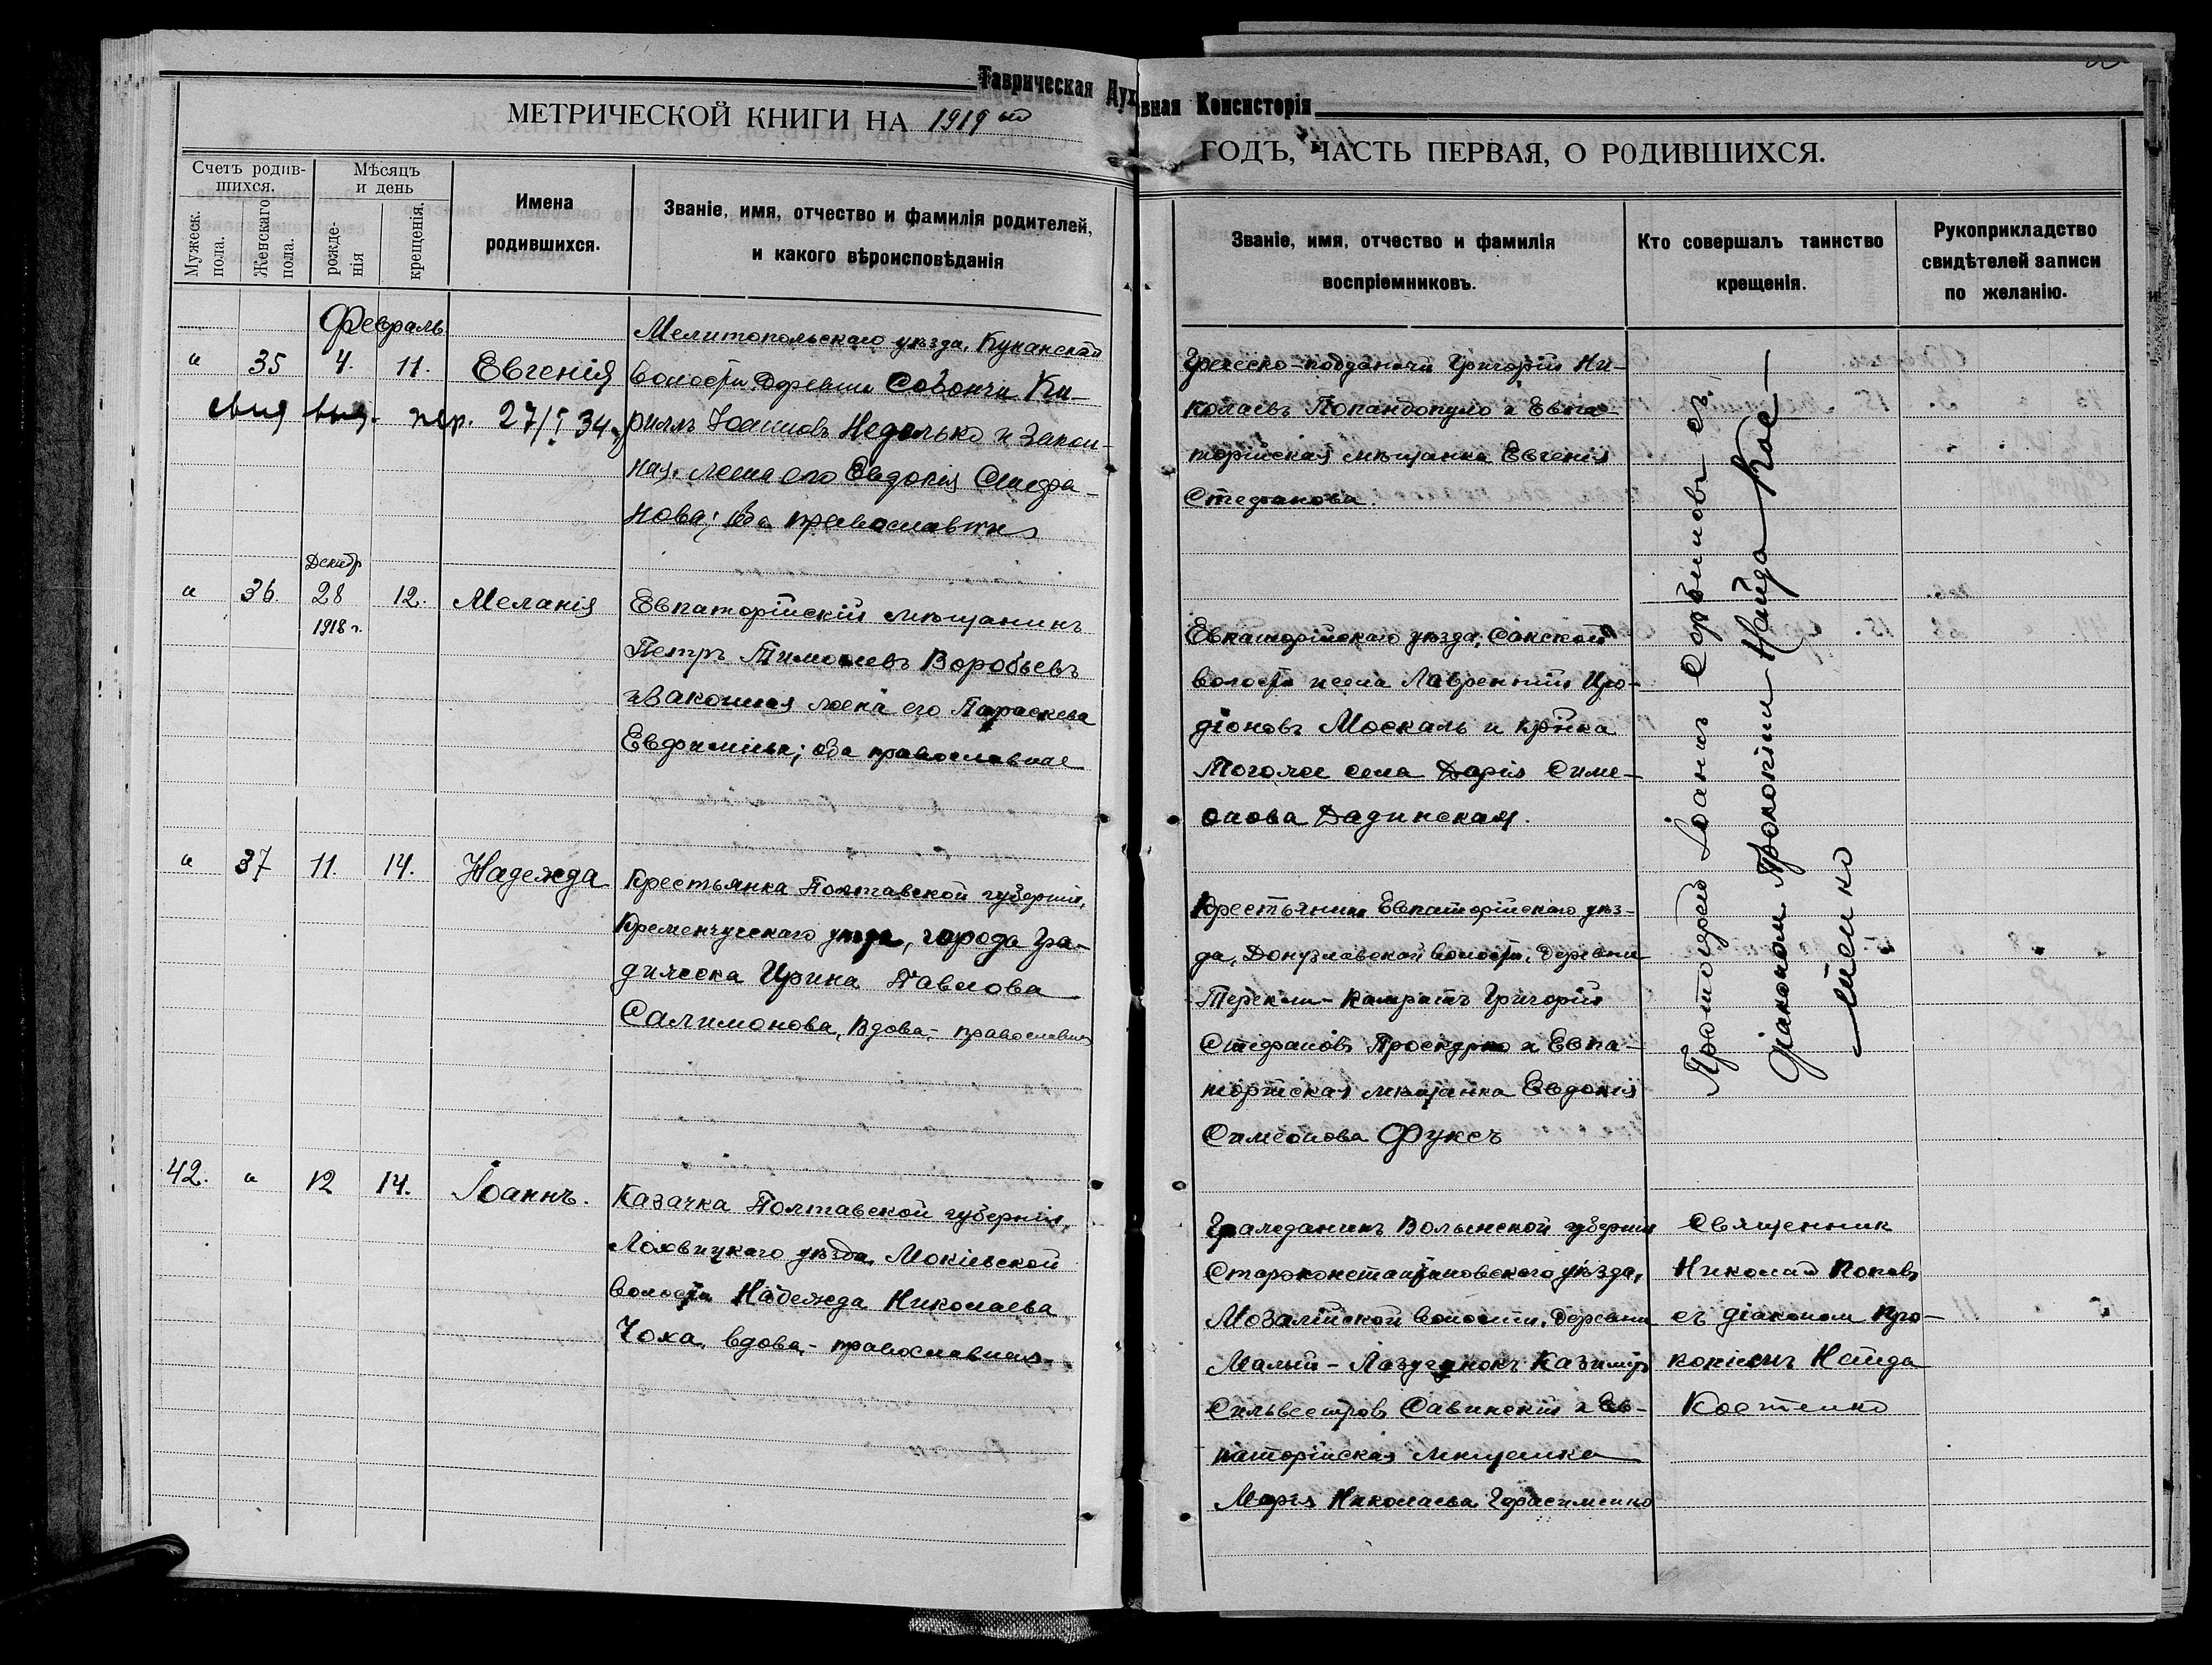 Таврическая Духовная Консисторія
МЕТРИЧЕСКОЙ КНИГИ НА 1919 ый
ГОДЪ, ЧАСТЬ ПЕРВАЯ, О РОДИВШИХСЯ.
Счетъ родив-
шихся.
Мужеск.
пола.
Женскаго
пола.
Мѣсяцъ
и день
рожде-
нія
крещенія.
Имена
родившихся.
Званіе, имя, отчество и фамилія родителей,
и какого вѣроисповѣданія
Званіе, имя, отчество и фамилія
воспріемниковъ.
Кто совершалъ таинство
крещенія.
Рукоприкладство
свидѣтелей записи
по желанію.
Февраль
" 35 4. 11. Евгенія
27/I 34
Мелитопольскаго уѣзда,
волости деревни Ки-
риллъ Іоанновъ Неделько и закон-
ная жена его Евдокія Стефа-
нова; оба православные
Греческо-подданный Григорій Ни-
колаевъ Попандопуло и Евпа-
торійская мѣщанка Евгенія
Стефанова.
Протоіерей Іоаннъ съ
діакономъ Прокопіемъ Найда Кос-
тенко
Декабр
" 36. 28 12. Меланія
1918 г.
Евпаторійскій мѣщанинъ
Петръ Тимоѳеевъ Воробьевъ
и законная жена его Параскева
Евфиміева; оба православные
Евпаторійскаго уѣзда, Сакской
волости и села Лаврентій Иро-
діоновъ Москаль и кр-нка
того же села Дарія Симе-
онова Дадинская.
" 37 11. 14. Надежда
Крестьянка Полтавской губерніи,
Кременчугскаго уѣзда, города Гра-
дижска Ирина Павлова
Салимонова, вдова, - православная
Крестьянинъ Евпаторійскаго уѣз-
да, Донузлавской волости, деревни
Терекли- Григорій
Стефановъ Проскурко и Евпа-
торійская мѣщанка Евдокія
Симеонова Фуксъ
42. " 12 14. Іоаннъ.
Казачка Полтавской губерніи,
Лохвицкаго уѣзда, Мокіевской
волости Надежда Николаева
Чоха, вдова, - православная.
Гражданинъ Волынской губерніи
Староконстантиновскаго уѣзда,
волости, деревни
Малый- Казиміръ
Сильвестровъ Савинскій и Ев-
паторійская мѣщанка
Марія Николаева Герасименко
Священникъ
Николай Поповъ
съ діакономъ Про-
копіемъ Найда
Костенко